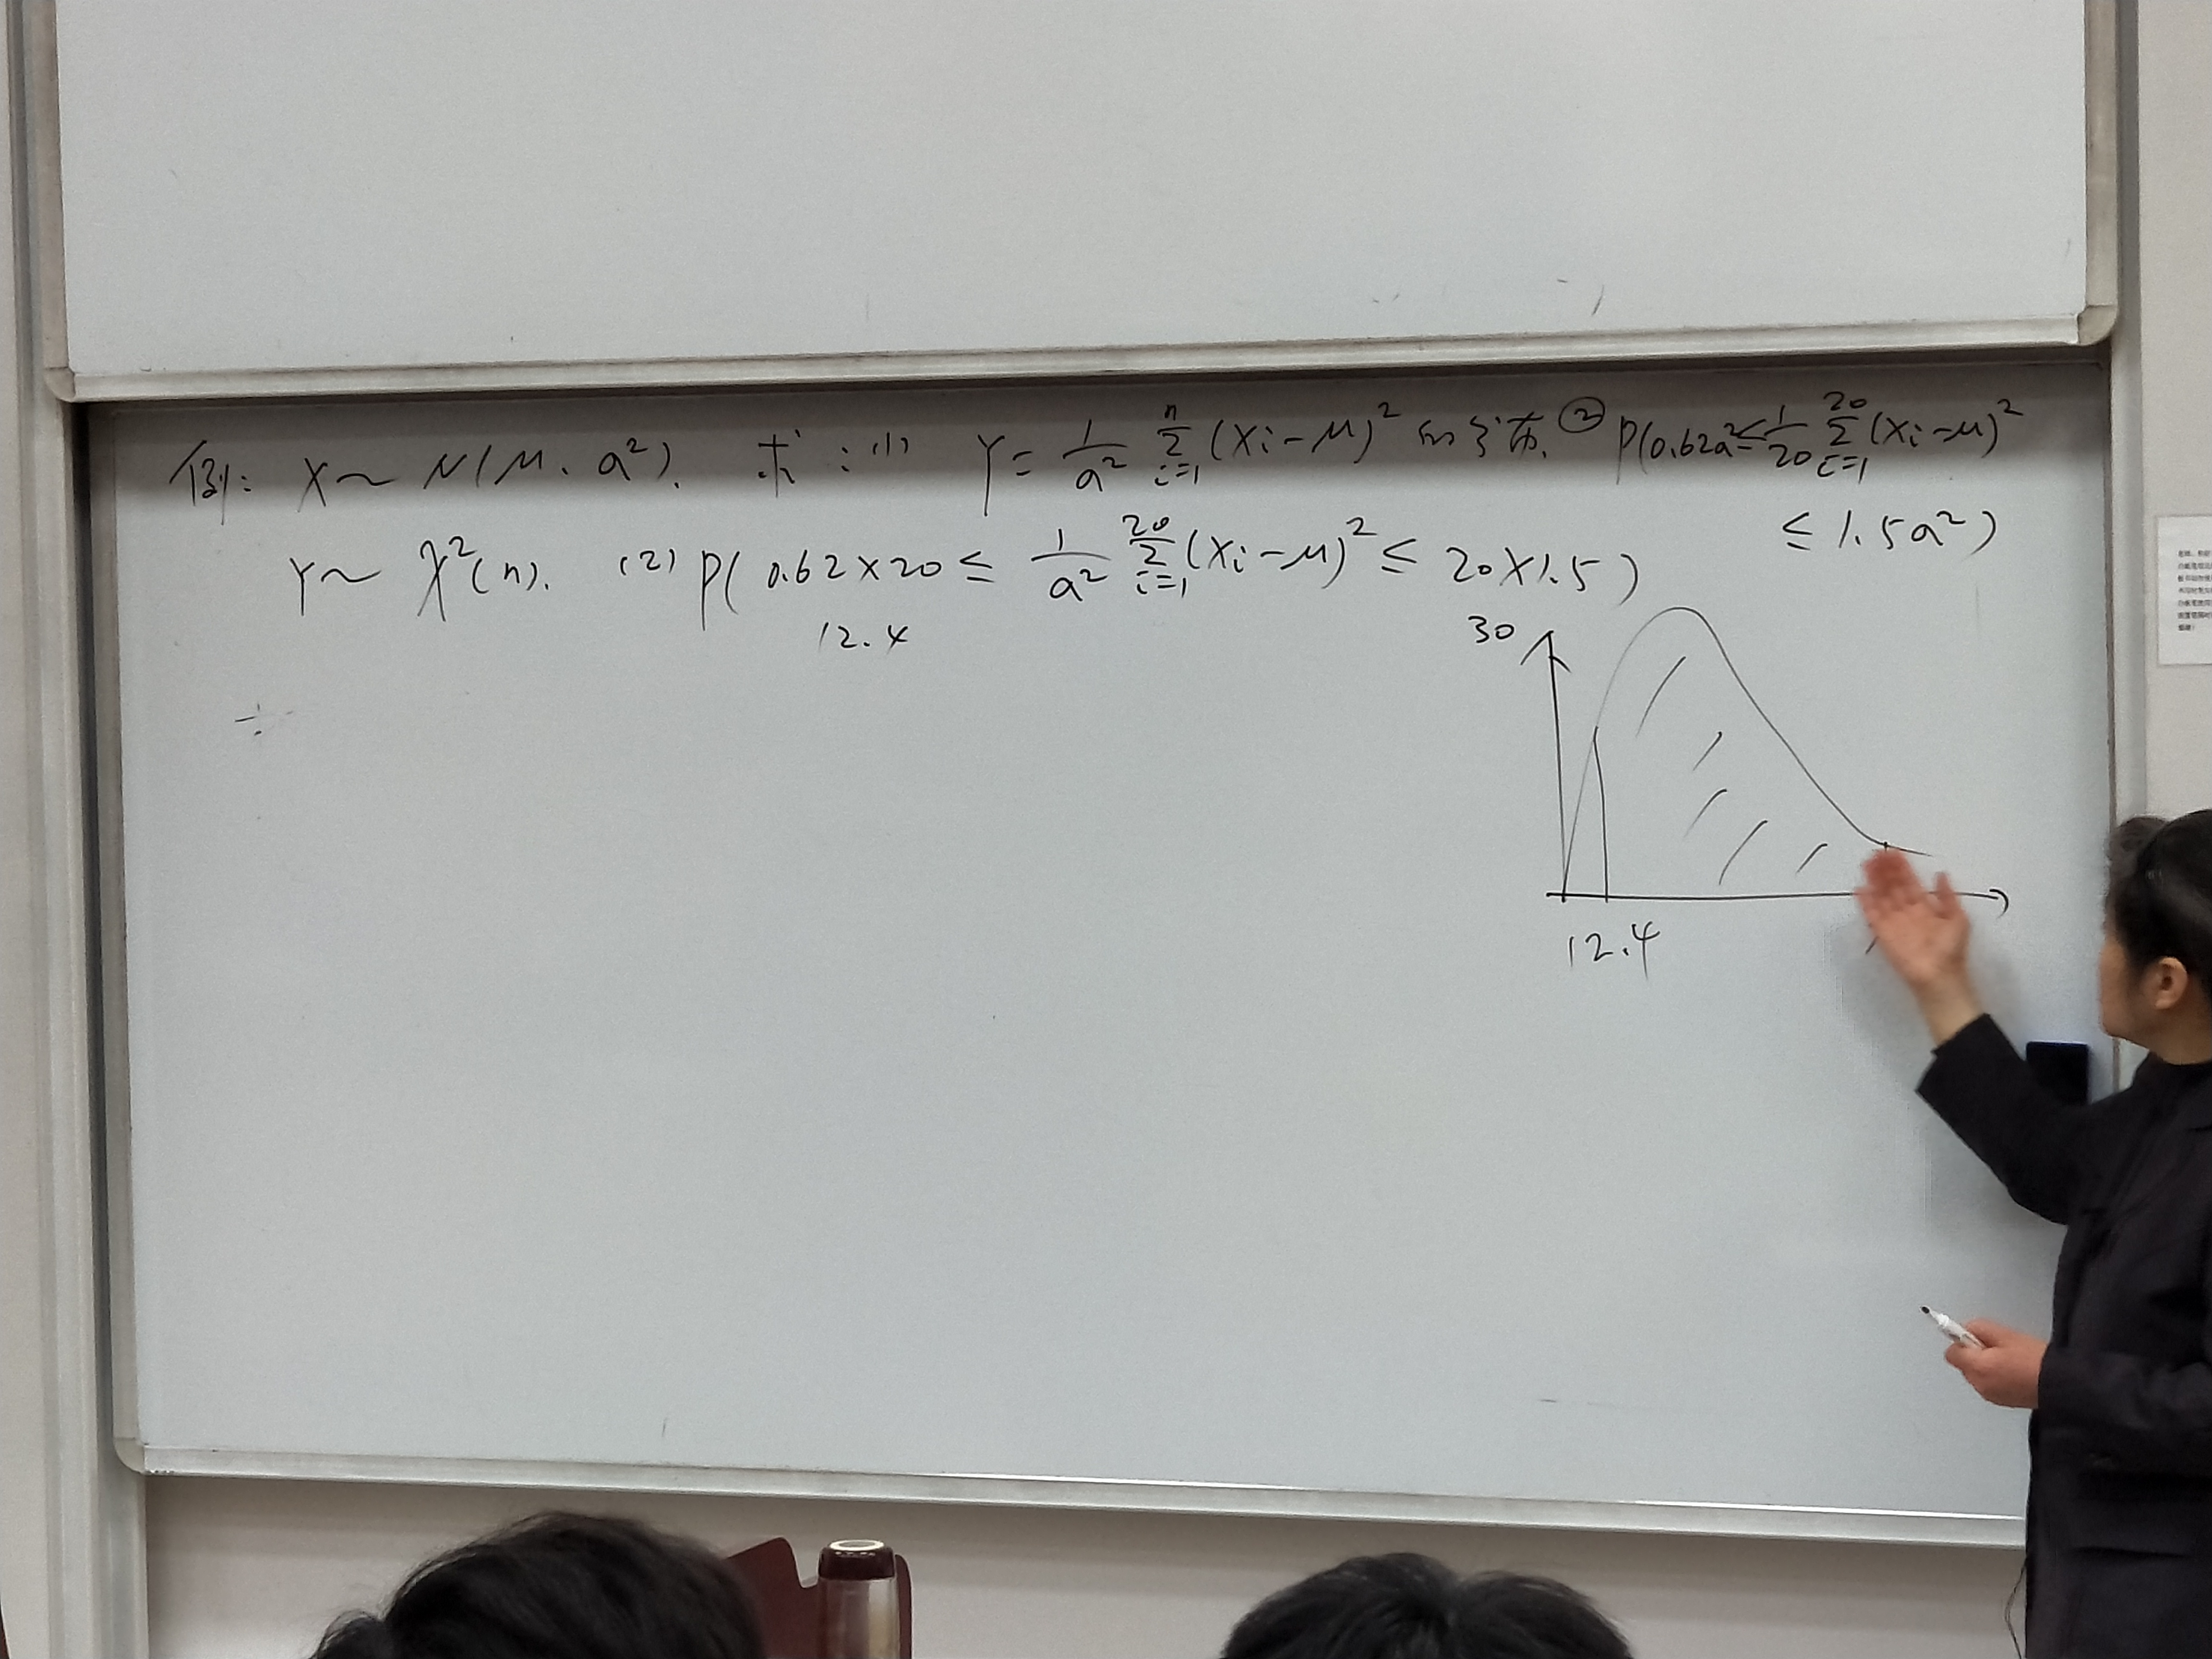 例: X ~ N(μ, a²). 求:(1) Y = 1/a² Σ_{i=1}^{n} (Xi-μ)² 的分布. ② P(0.62a² ≤ 1/20 Σ_{i=1}^{20} (Xi-μ)²
≤ 1.5a²)
Y ~ χ²(n). (2) P( 0.62×20 ≤ 1/a² Σ_{i=1}^{20} (Xi-μ)² ≤ 20×1.5)
12.4
30
12.4